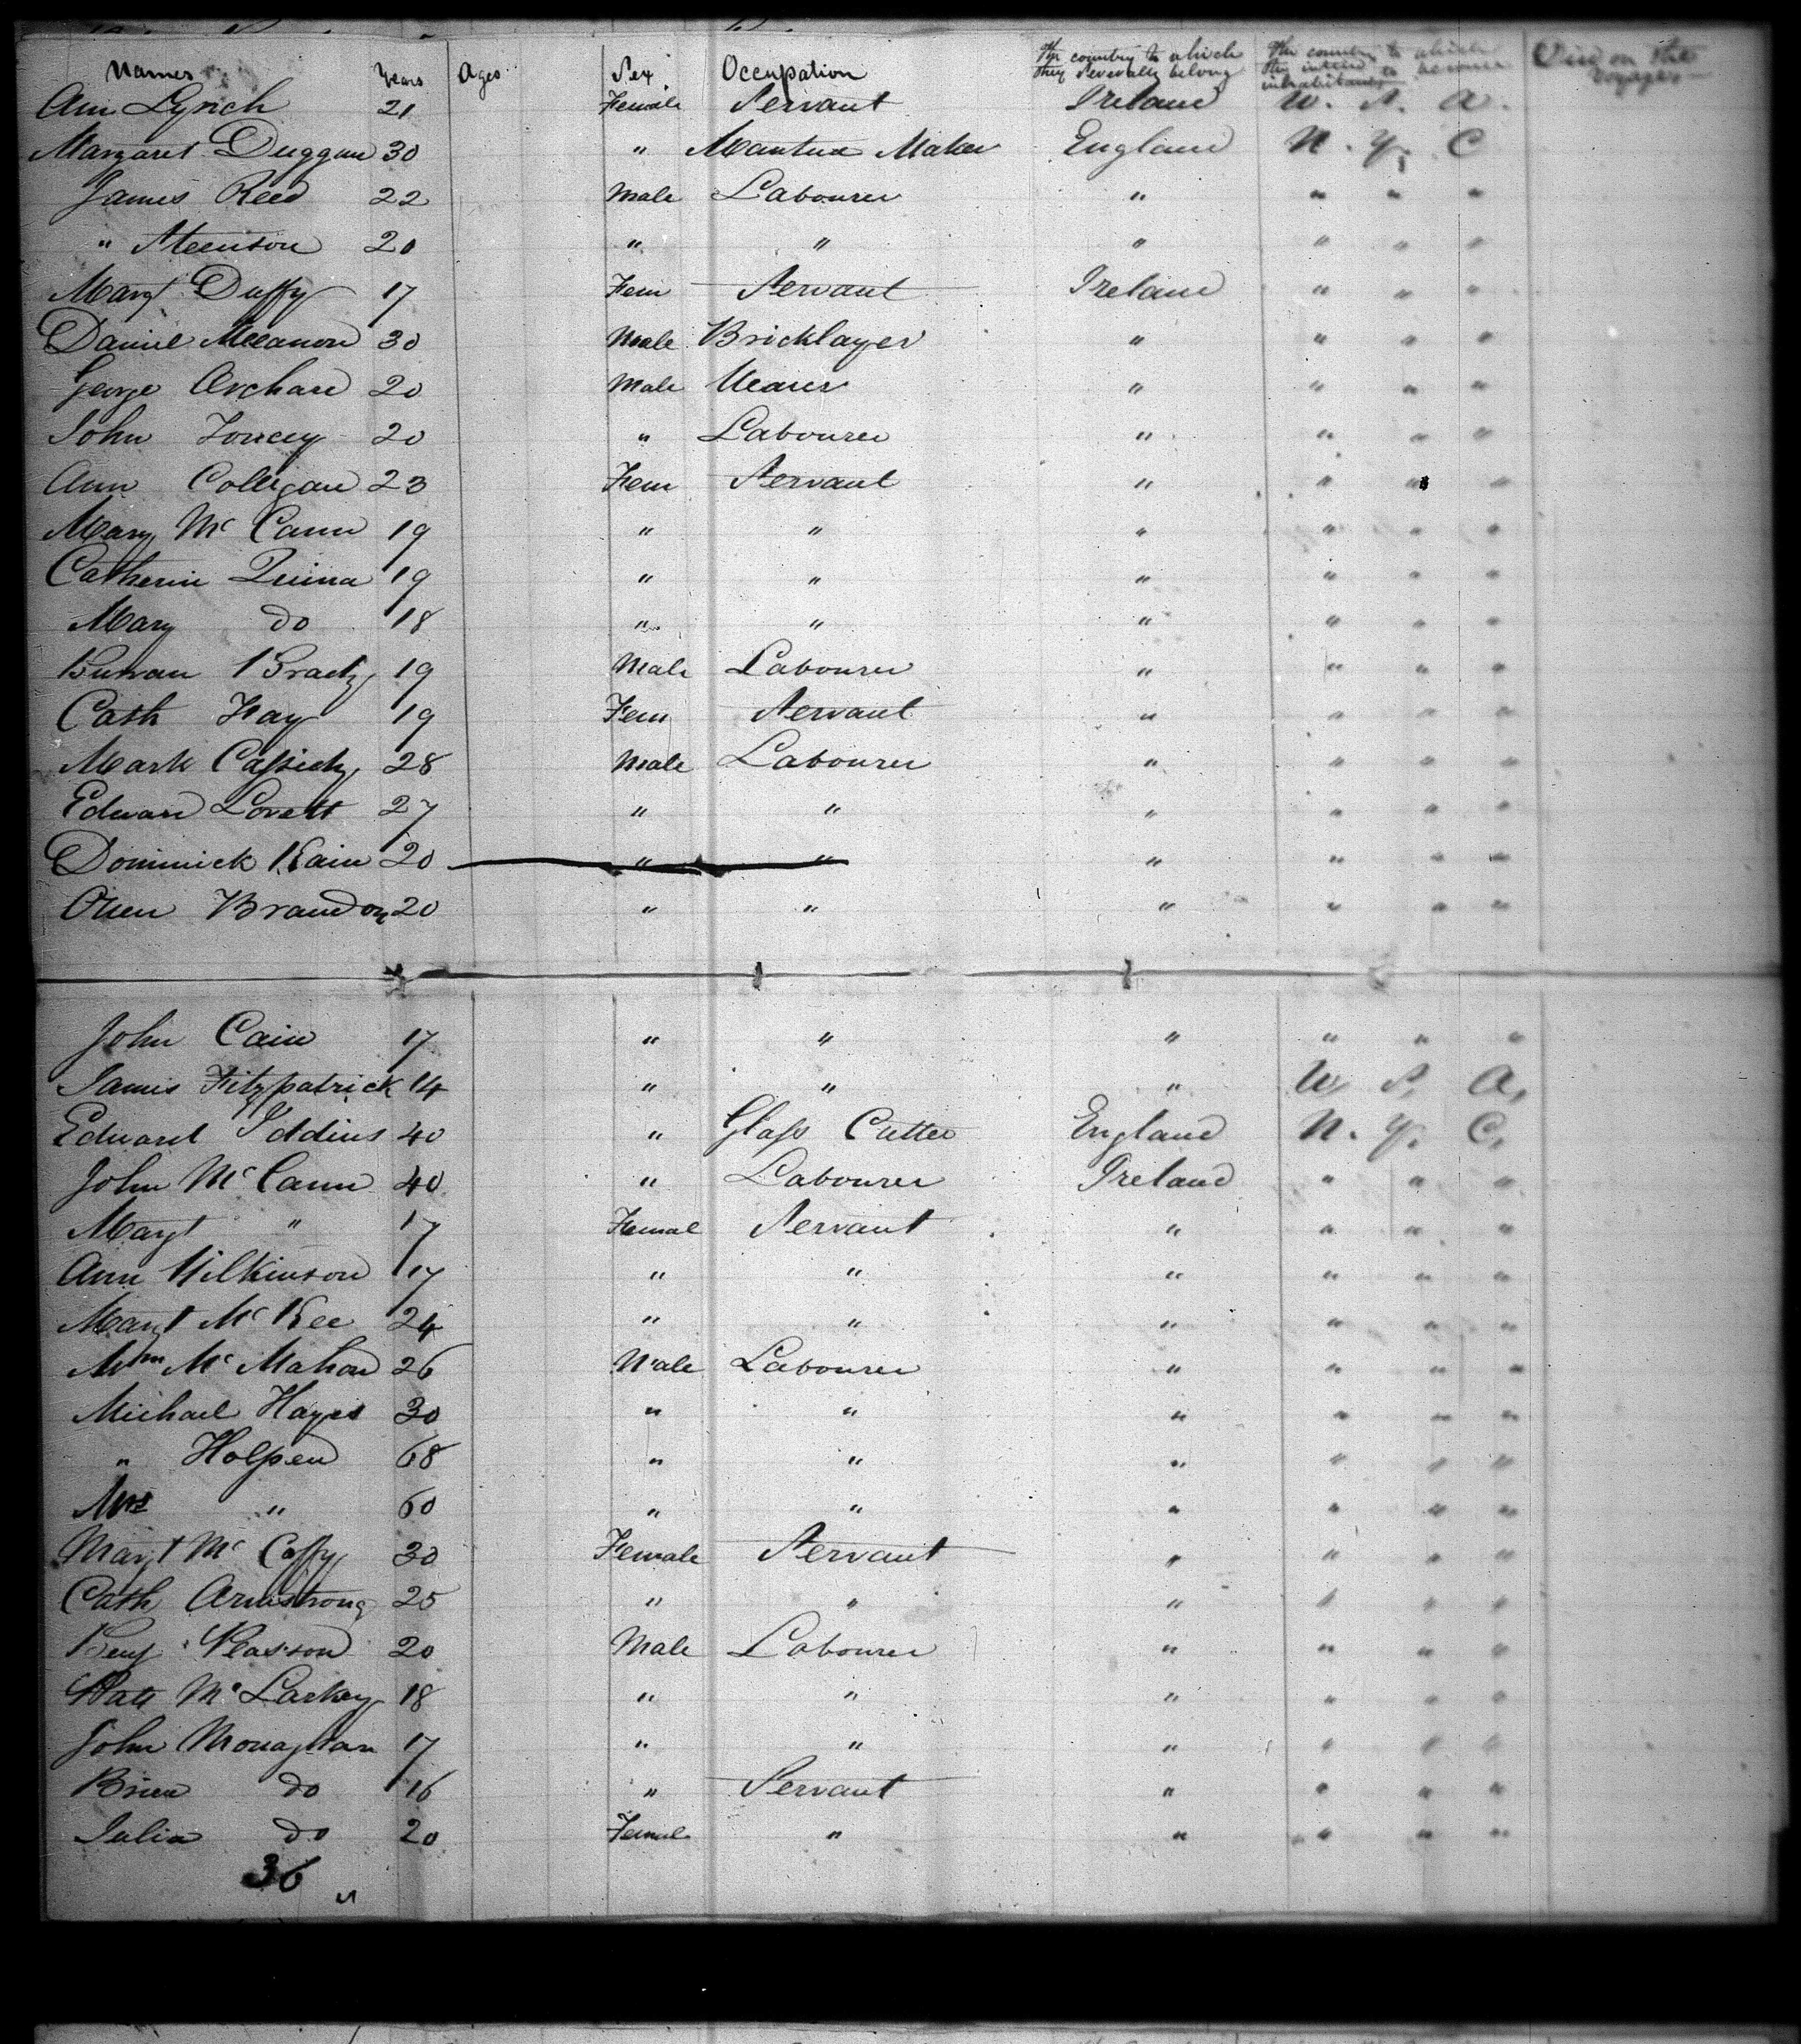 Names Years Ages Sex Occupation The country to which they severally belong The country to which they intend to become inhabitants Died on the Voyage
Ann Lynch 21 Female Servant Ireland U. S. A.
Margaret Duggan 30 " Mantua Maker England N. Y. C
James Reed 22 Male Labourer " " " "
" Steenson 20 " " " " " "
Margt Duffy 17 Fem Servant Ireland " " "
Daniel 30 Male Bricklayer " " " "
George Orchard 20 Male " " " "
John 20 " Labourer " " " "
Ann Colligan 23 Fem Servant " " " "
Mary Mc Cann 19 " " " " " "
Catherin Quinn 19 " " " " " "
Mary do 18 " " " " " "
Brady 19 Male Labourer " " " "
Cath Fay 19 Fem Servant " " " "
Mark Cassidy 28 Male Labourer " " " "
Edward Lovett 27 " " " " " "
Dominick Kain 20 " " " " " "
Owen Brandon 20 " " " " " "
John Cain 17 " " " " " "
James Fitzpatrick 14 " " " U. S. A.
Edward Iddins 40 " Glass Cutter England N. Y. C.
John Mc Cann 40 " Labourer Ireland " " "
Margt " 17 Femal Servant " " " "
Ann Wilkinson 17 " " " " " "
Margt Mc Kee 24 " " " " " "
Wm Mc Mahon 26 Male Labourer " " " "
Michael Hayes 30 " " " " " "
" Holpen 68 " " " " " "
Mrs " 60 " " " " " "
Margt Mc Caffy 30 Female Servant " " " "
Cath Armstrong 25 " " " " " "
Benj Peasson 20 Male Labourer " " " "
Patk Mc Laskey 18 " " " " " "
John Monaghan 17 " " " " " "
Brien do 16 " Servant " " " "
Julia do 20 Femal " " " " "
36